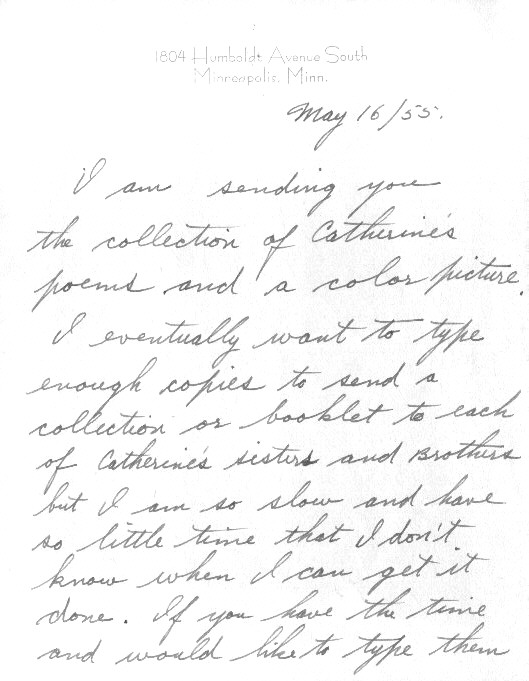 1804 Humboldt Avenue South
Minneapolis, Minn.
May 16/55.
I am sending you
the collection of Catherine's
poems and a color picture.
I eventually want to type
enough copies to send a
collection or booklet to each
of Catherine's sisters and Brothers
but I am so slow and have
so little time that I don't
know when I can get it
done. If you have the time
and would like to type them